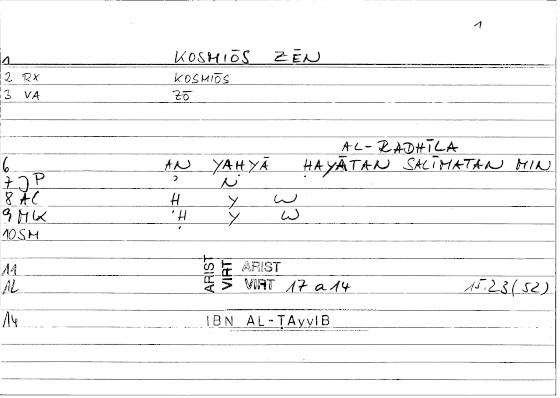 1
1 KOSMIŌS ZĒN
2 RX KOSMIŌS
3 VA ZŌ
AL-RADHĪLA
6 AN YAḤYĀ ḤAYĀTAN SALĪMATAN MIN
7 JP ʾ N
8 AL H Y W
9 MLK ʾH Y W
10 SM
11 ARIST VIRT ARIST
12 VIRT 17 a 14 15.23 (52)
14 IBN AL-ṬAyyIB